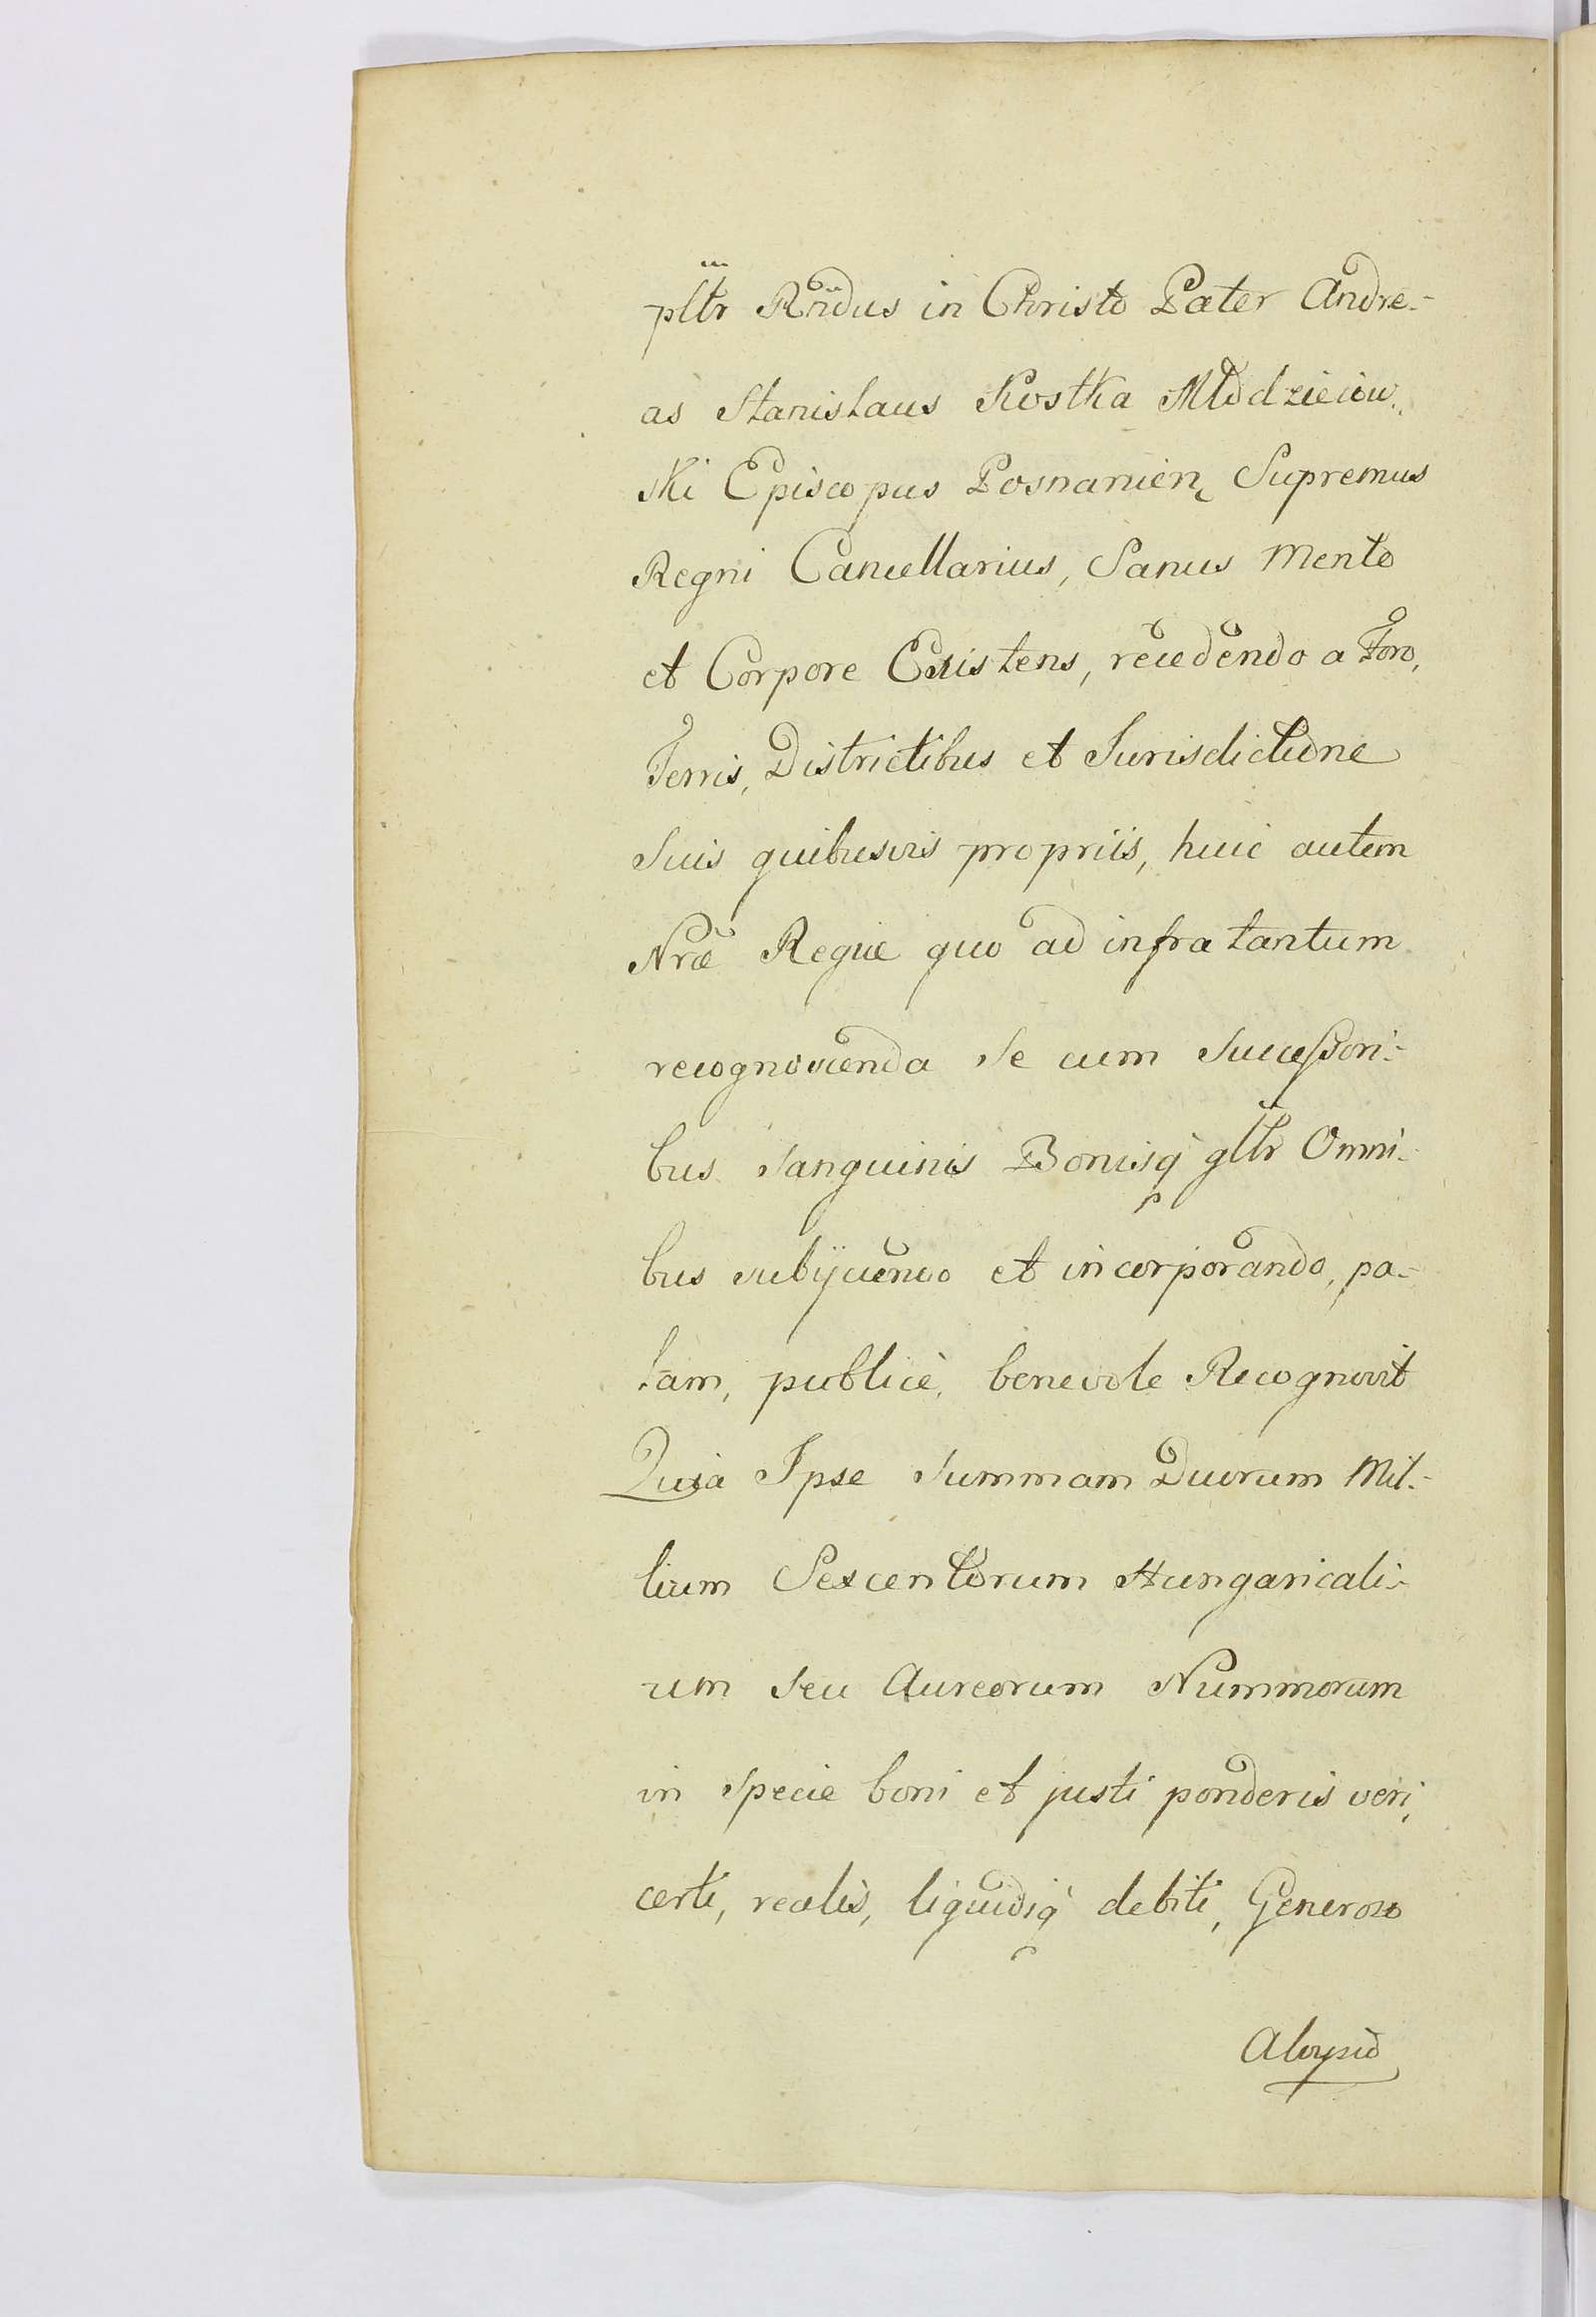 pltr Rñdus in Christo Pater Andre-
as Stanislaus Kostka Młodzieiow-
ski Episcopus Posnanien Supremus
Regni Cancellarius, Sanus Mente
et Corpore Existens, recedendo a Foro,
Terris, Districtibus et Jurisdictione
suis quibusvis propriis, huic autem
Nrae Regiae quo ad infra tantum
recognoscenda se cum Successori-
bus sanguinis Bonisq̀ gltr Omni-
bus subijciendo et incorporando, pa-
lam, publicè, benevole Recognovit
Quia Ipse Summam Duorum Mil-
lium Sexcentorum Hungaricali-
um seu Aureorum Nummorum
in specie boni et justi ponderis veri,
certi, realis, liquidiq̀ debiti, Generoso
Aloysio